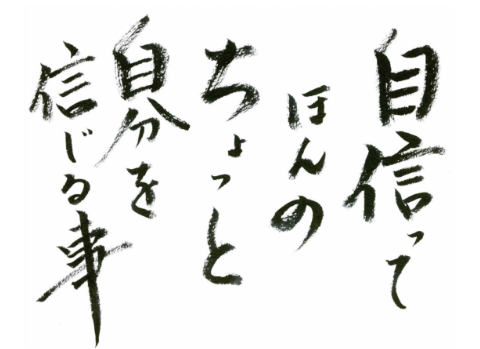 自信って
ほんの
ちょっと
自分を
信じる事